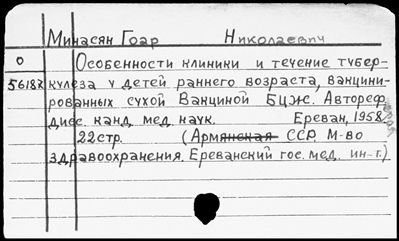 Минасян Гоар Николаевич
0 Особенности клиники и течение тубер-
56187 кулеза у детей раннего возраста, вакцини-
рованных сухой Вакциной БЦЖ. Автореф.
дисс. канд. мед. наук. Ереван, 1958.
22стр. (Армянская ССР. М-во
здравоохранения. Ереванский гос. мед. ин-т.)